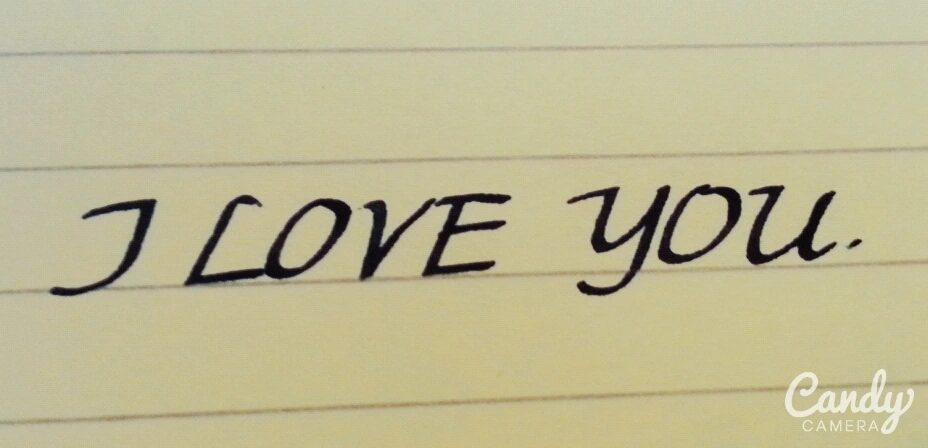 I LOVE YOU.
Candy
CAMERA